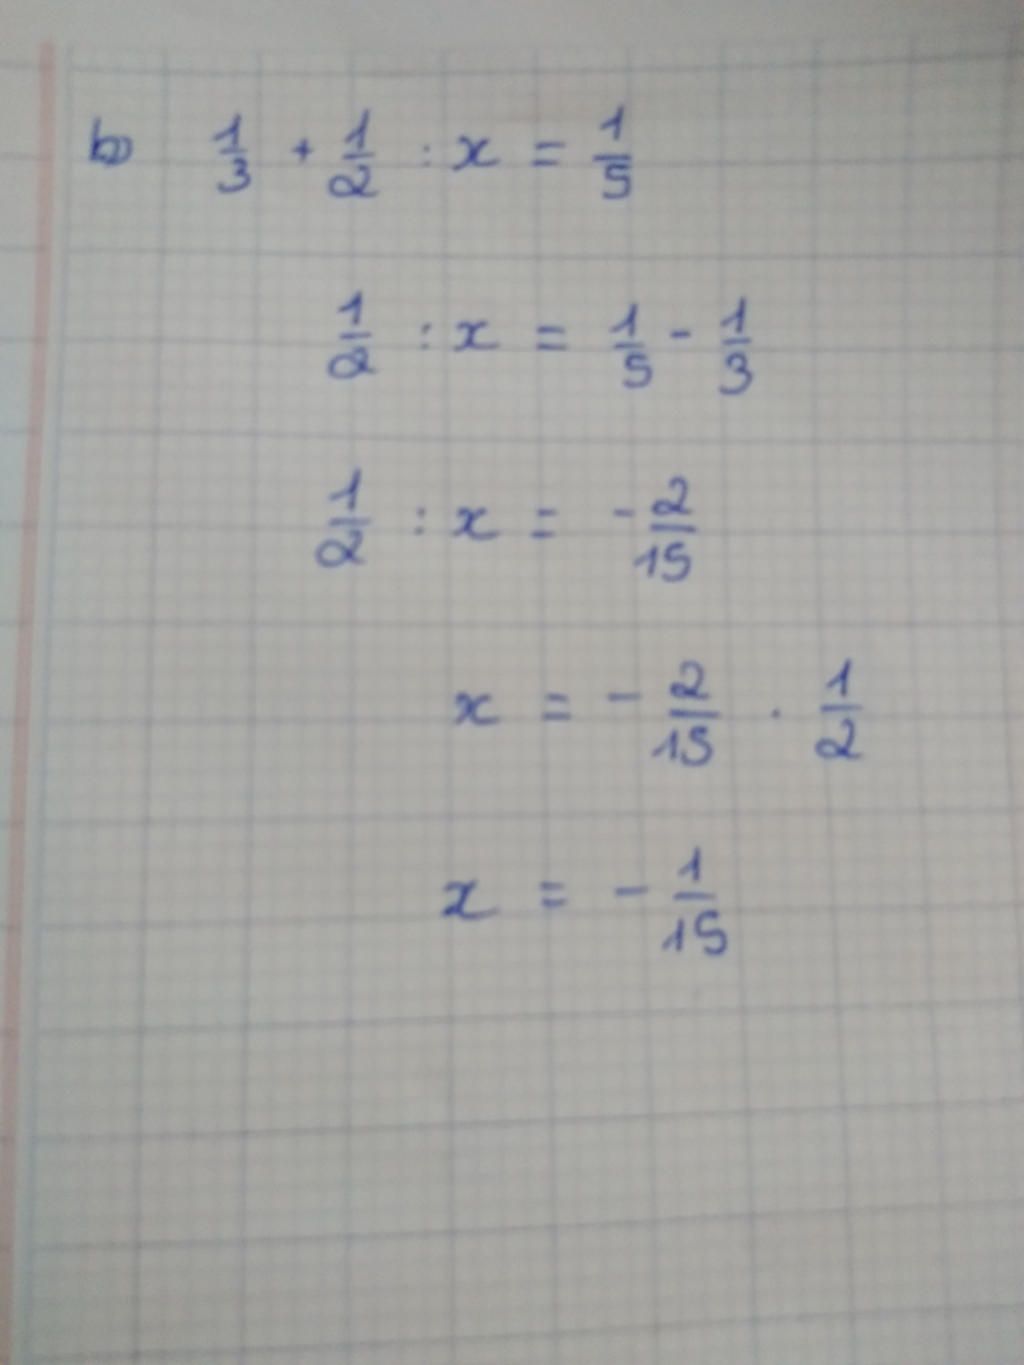 b) 1/3 + 1/2 : x = 1/5
1/2 : x = 1/5 - 1/3
1/2 : x = - 2/15
x = - 2/15 · 1/2
x = - 1/15